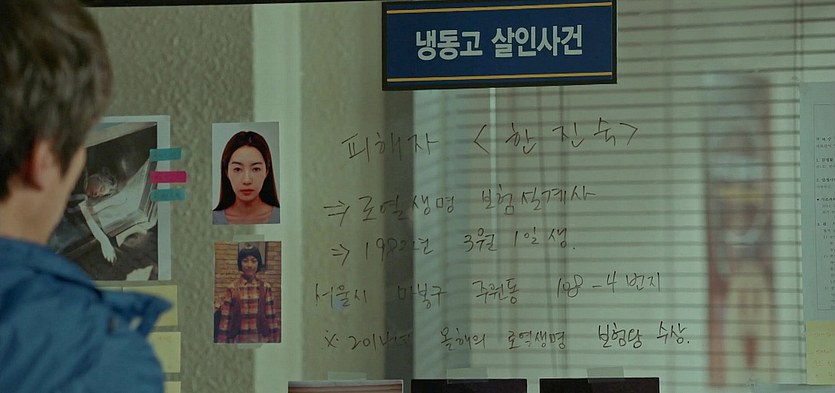 냉동고 살인사건
피해자 <한진숙>
⇒ 로열생명 보험설계사
⇒ 1982년 3월 1일생.
서울시 마봉구 주원동 108-4번지
※ 2014년 올해의 로열생명 보험당 수상.